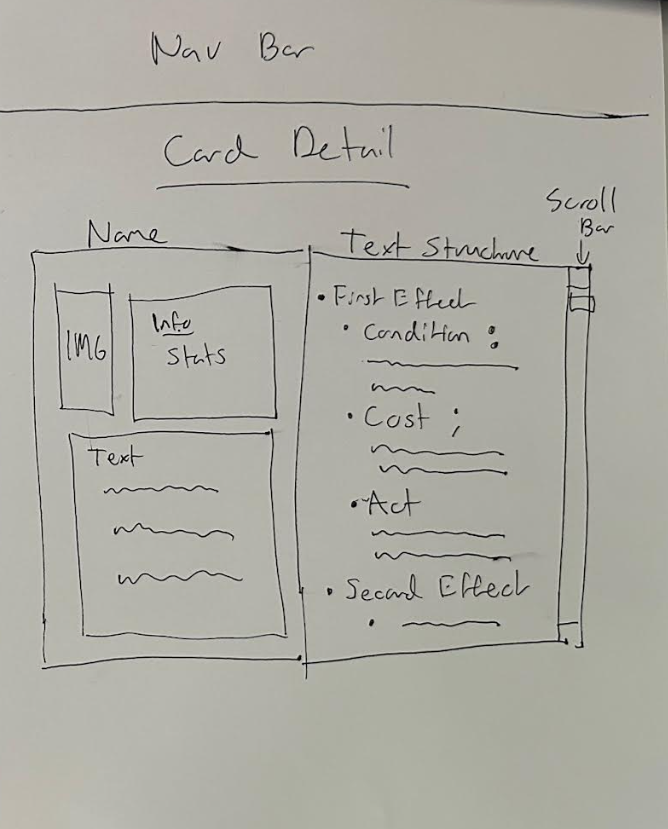 Nav Bar
Card Detail
Scroll
Bar
Name
IMG
Info
Stats
Text
Text Structure
• First Effect
• Condition :
• Cost ;
• Act
• Second Effect
•